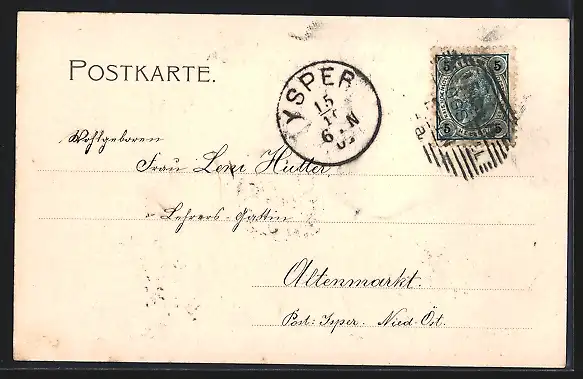 POSTKARTE.
YSPER
15
6 N
5 5
5 5
Wohlgeboren
Frau Leni Hütter,
Lehrers-Gattin
Altenmarkt.
Post: Isper. Nied. Öst.